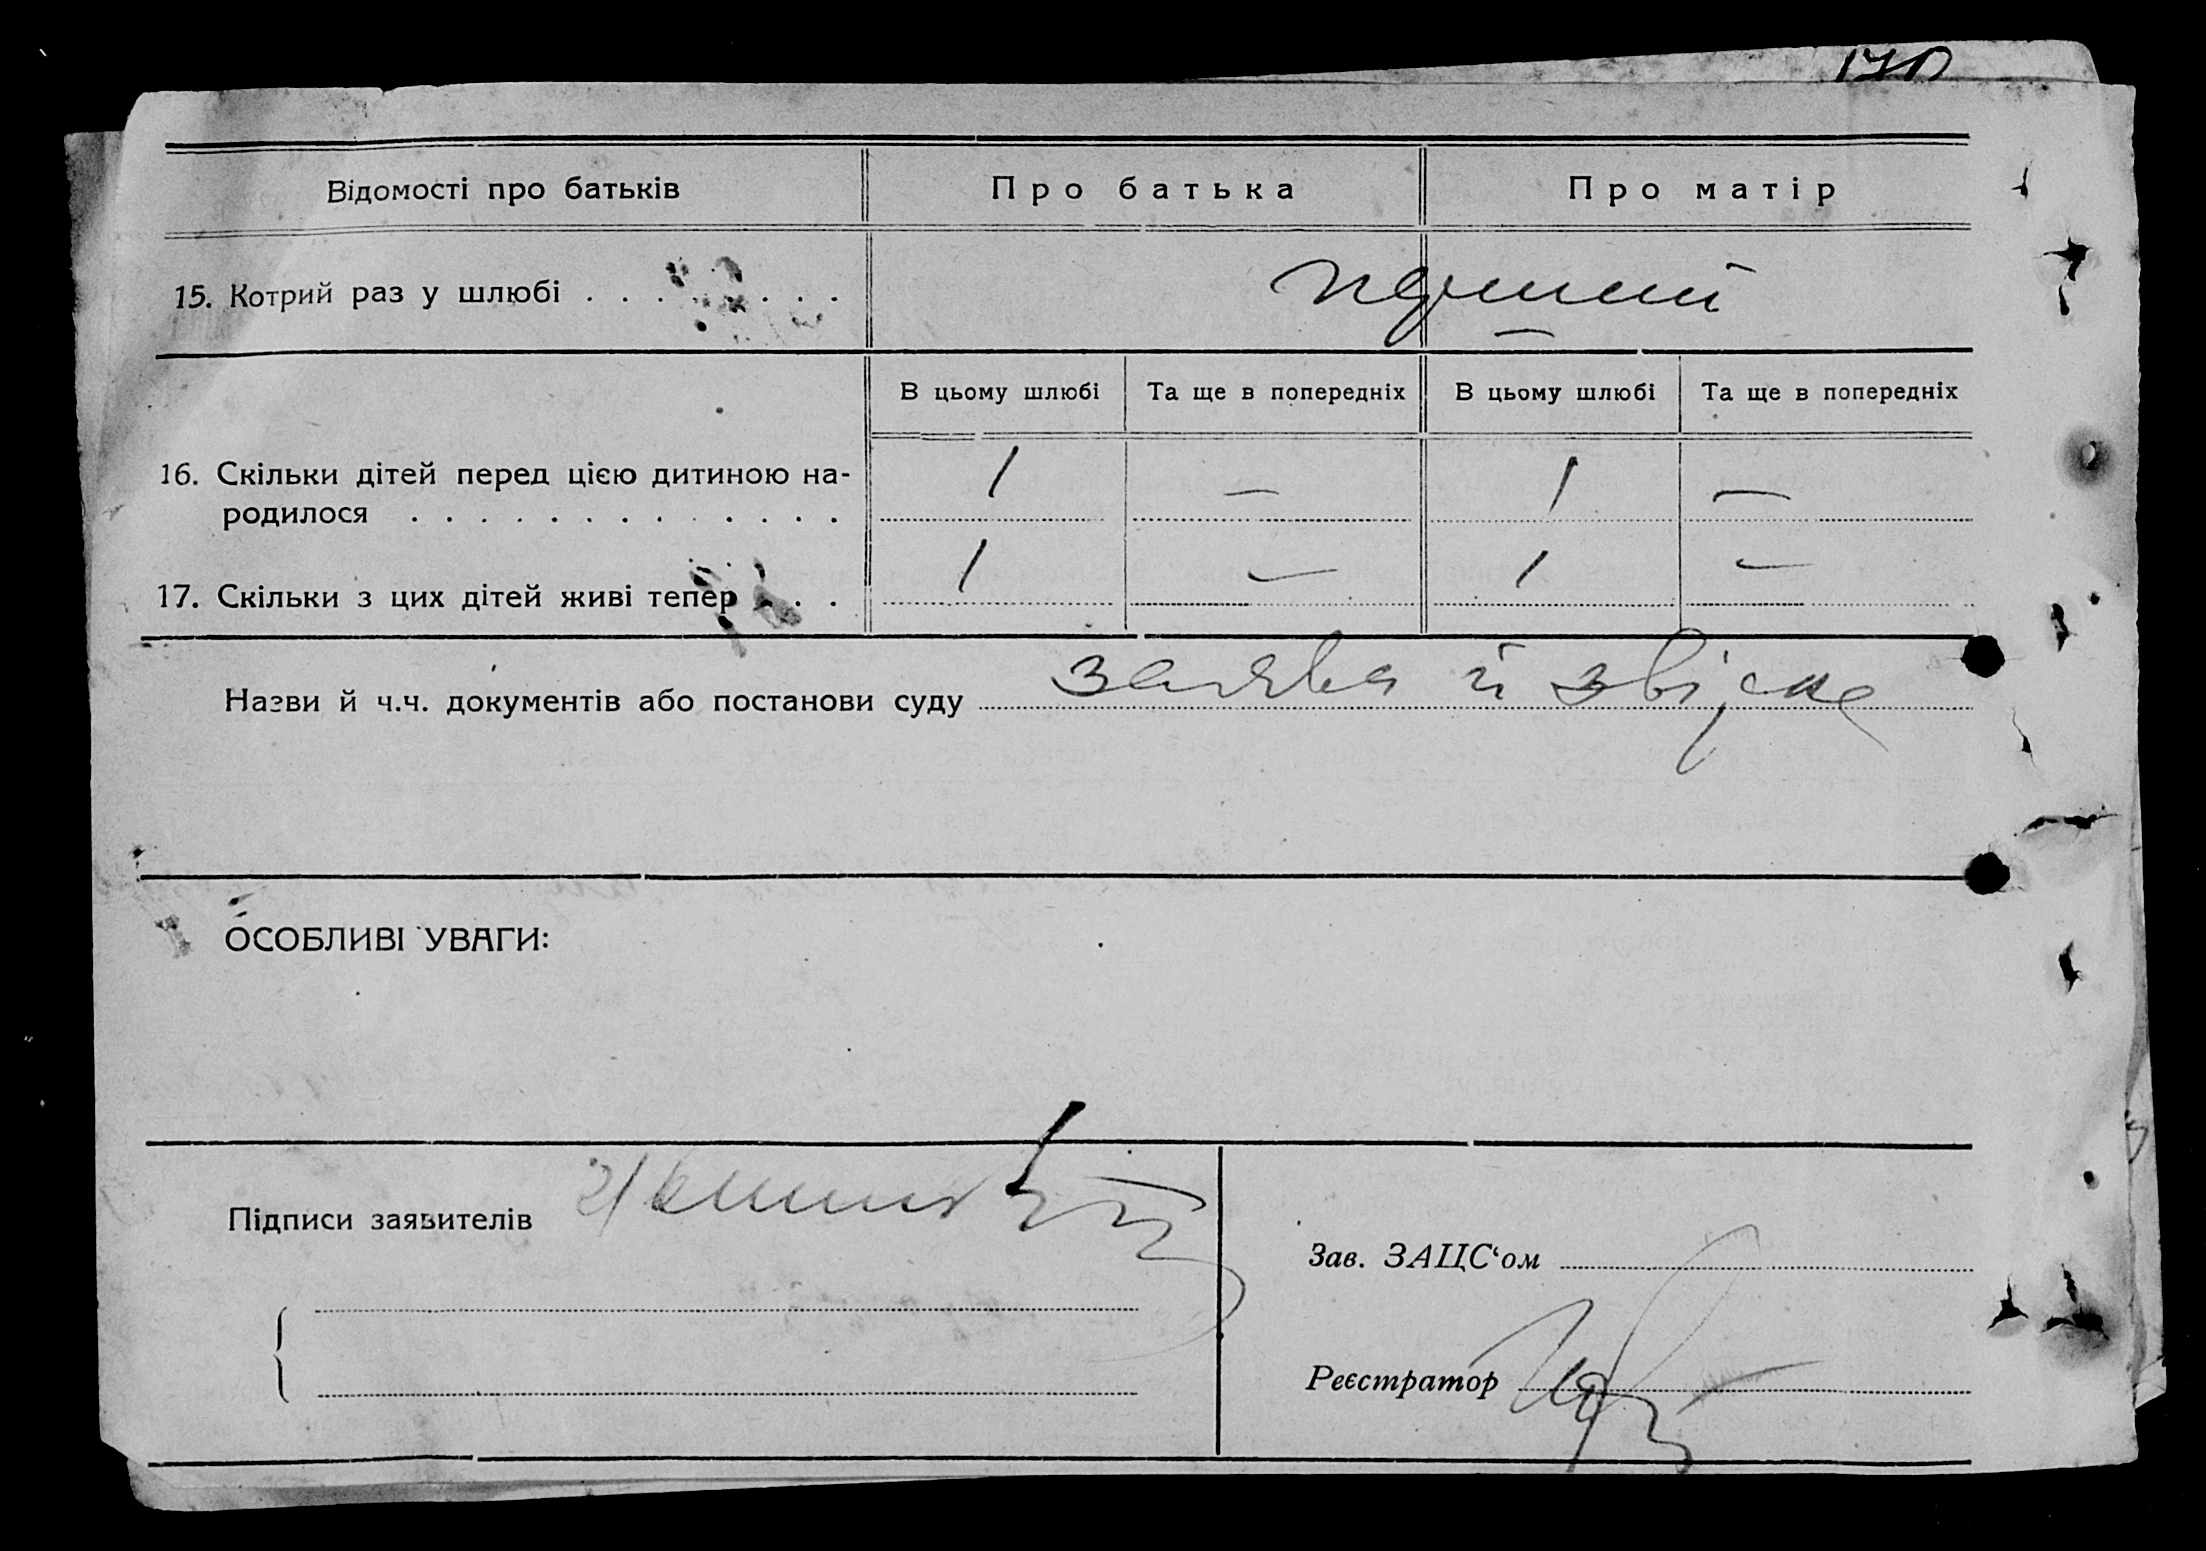 Відомості про батьків Про батька Про матір
15. Котрий раз у шлюбі . . . . . . . . перший
В цьому шлюбі Та ще в попередніх В цьому шлюбі Та ще в попередніх
16. Скільки дітей перед цією дитиною на-
родилося . . . . . . . . . . . . . 1 — 1 —
17. Скільки з цих дітей живі тепер . . . 1 — 1 —
Назви й ч.ч. документів або постанови суду заява й
ОСОБЛИВІ УВАГИ:
Підписи заявителів
Зав. ЗАЦС‘ом
Реєстратор